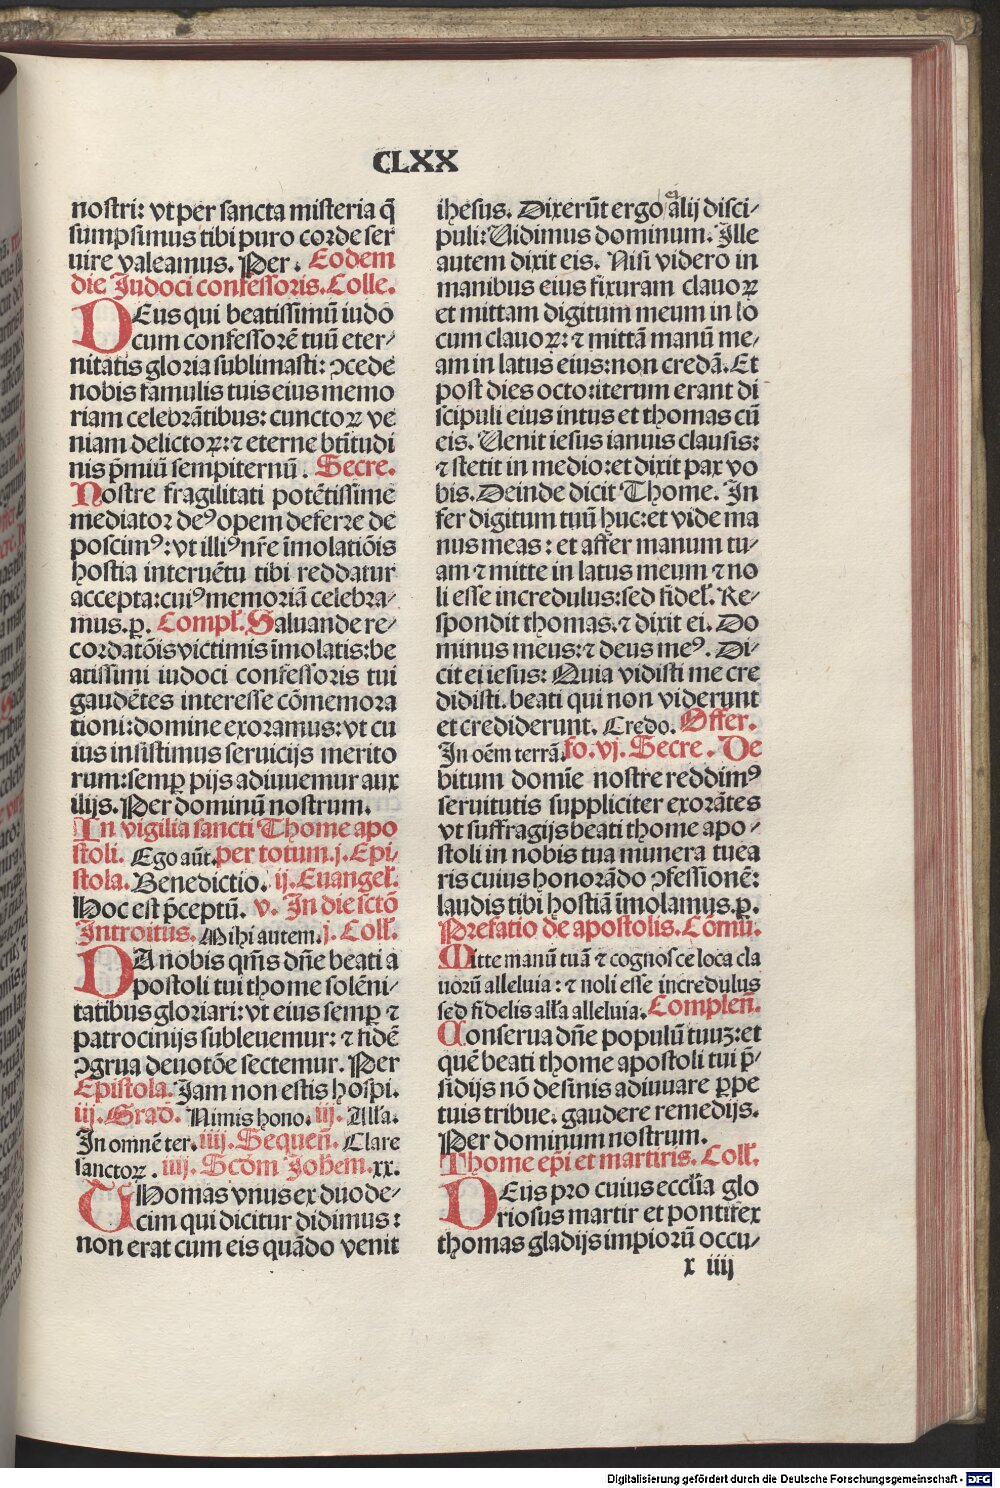 CLXX
nostri: vt per sancta misteria q̄
sumpsimus tibi puro corde ser
uire valeamus. Per. Eodem
die Iudoci confessoris. Colle.
DEus qui beatissimū iudo
cum confessorē tuū eter⸗
nitatis gloria sublimasti: ꝯcede
nobis famulis tuis eius memo
riam celebrātibus: cunctoꝝ ve
niam delictoꝝ: ⁊ eterne btītudi
nis p̄miū sempiternū. Secre.
Nostre fragilitati potētissime
mediator deꝰ opem deferre de
poscimꝰ: vt illiꝰ nr̄e īmolatiōis
hostia interuētu tibi reddatur
accepta: cuiꝰ memoriā celebra⸗
mus. ꝑ. Compl̄. Saluande re⸗
cordatōis victimis īmolatis: be
atissimi iudoci confessoris tui
gaudētes interesse cōmemora
tioni: domine exoramus: vt cu
ius insistimus seruicijs merito
rum: semꝑ pijs adiuuemur aux
ilijs. Per dominū nostrum.
In vigilia sancti Thome apo
stoli. Ego aūt. per totum. j. Epi⸗
stola. Benedictio. ij. Euangel̄.
Hoc est p̄ceptū. v. In die sctō
Introitus. Mihi autem. j. Coll̄.
DA nobis qm̄s dn̄e beati a
postoli tui thome solēni⸗
tatibus gloriari: vt eius semꝑ ⁊
patrocinijs subleuemur: ⁊ fidē
ꝯgrua deuotōe sectemur. Per
Epistola. Iam non estis hospi.
iij. Grad̄. Nimis hono. iij. Alla.
In omnē ter. iiij. Sequen̄. Clare
sanctoꝝ. iiij. Scdm Johem. xx.
THomas vnus ex duode⸗
cim qui dicitur didimus:
non erat cum eis quādo venit
ihesus. Dixerūt ergo ei alij disci⸗
puli: Vidimus dominum. Ille
autem dixit eis. Nisi videro in
manibus eius fixuram clauoꝝ
et mittam digitum meum in lo
cum clauoꝝ: ⁊ mittā manū me⸗
am in latus eius: non credā. Et
post dies octo: iterum erant di
scipuli eius intus et thomas cū
eis. Venit iesus ianuis clausis:
⁊ stetit in medio: et dixit pax vo
bis. Deinde dicit Thome. In
fer digitum tuū huc: et vide ma
nus meas: et affer manum tu⸗
am ⁊ mitte in latus meum ⁊ no
li esse incredulus: sed fidel̄. Re⸗
spondit thomas. ⁊ dixit ei. Do
minus meus: ⁊ deus meꝰ. Di⸗
cit ei iesus: Quia vidisti me cre
didisti. beati qui non viderunt
et crediderunt. Credo. Offer.
In oēm terrā. fo. vj. Secre. De
bitum domīe nostre reddimꝰ
seruitutis suppliciter exorātes
vt suffragijs beati thome apo⸗
stoli in nobis tua munera tuea
ris cuius honorādo ꝯfessionē:
laudis tibi hostiā īmolamus. ꝑ.
Prefatio de apostolis. Cōmu̅.
Mitte manū tuā ⁊ cognosce loca cla
uorū alleluia: ⁊ noli esse incredulus
sed fidelis alla alleluia. Complen̄.
Conserua dn̄e populū tuuꝫ: et
quē beati thome apostoli tui p̄⸗
sidijs nō desinis adiuuare ꝑpe
tuis tribue. gaudere remedijs.
Per dominum nostrum.
Thome ep̄i et martiris. Coll̄.
DEus pro cuius eccl̄ia glo
riosus martir et pontifex
thomas gladijs impiorū occu⸗
x iiij
Digitalisierung gefördert durch die Deutsche Forschungsgemeinschaft - DFG